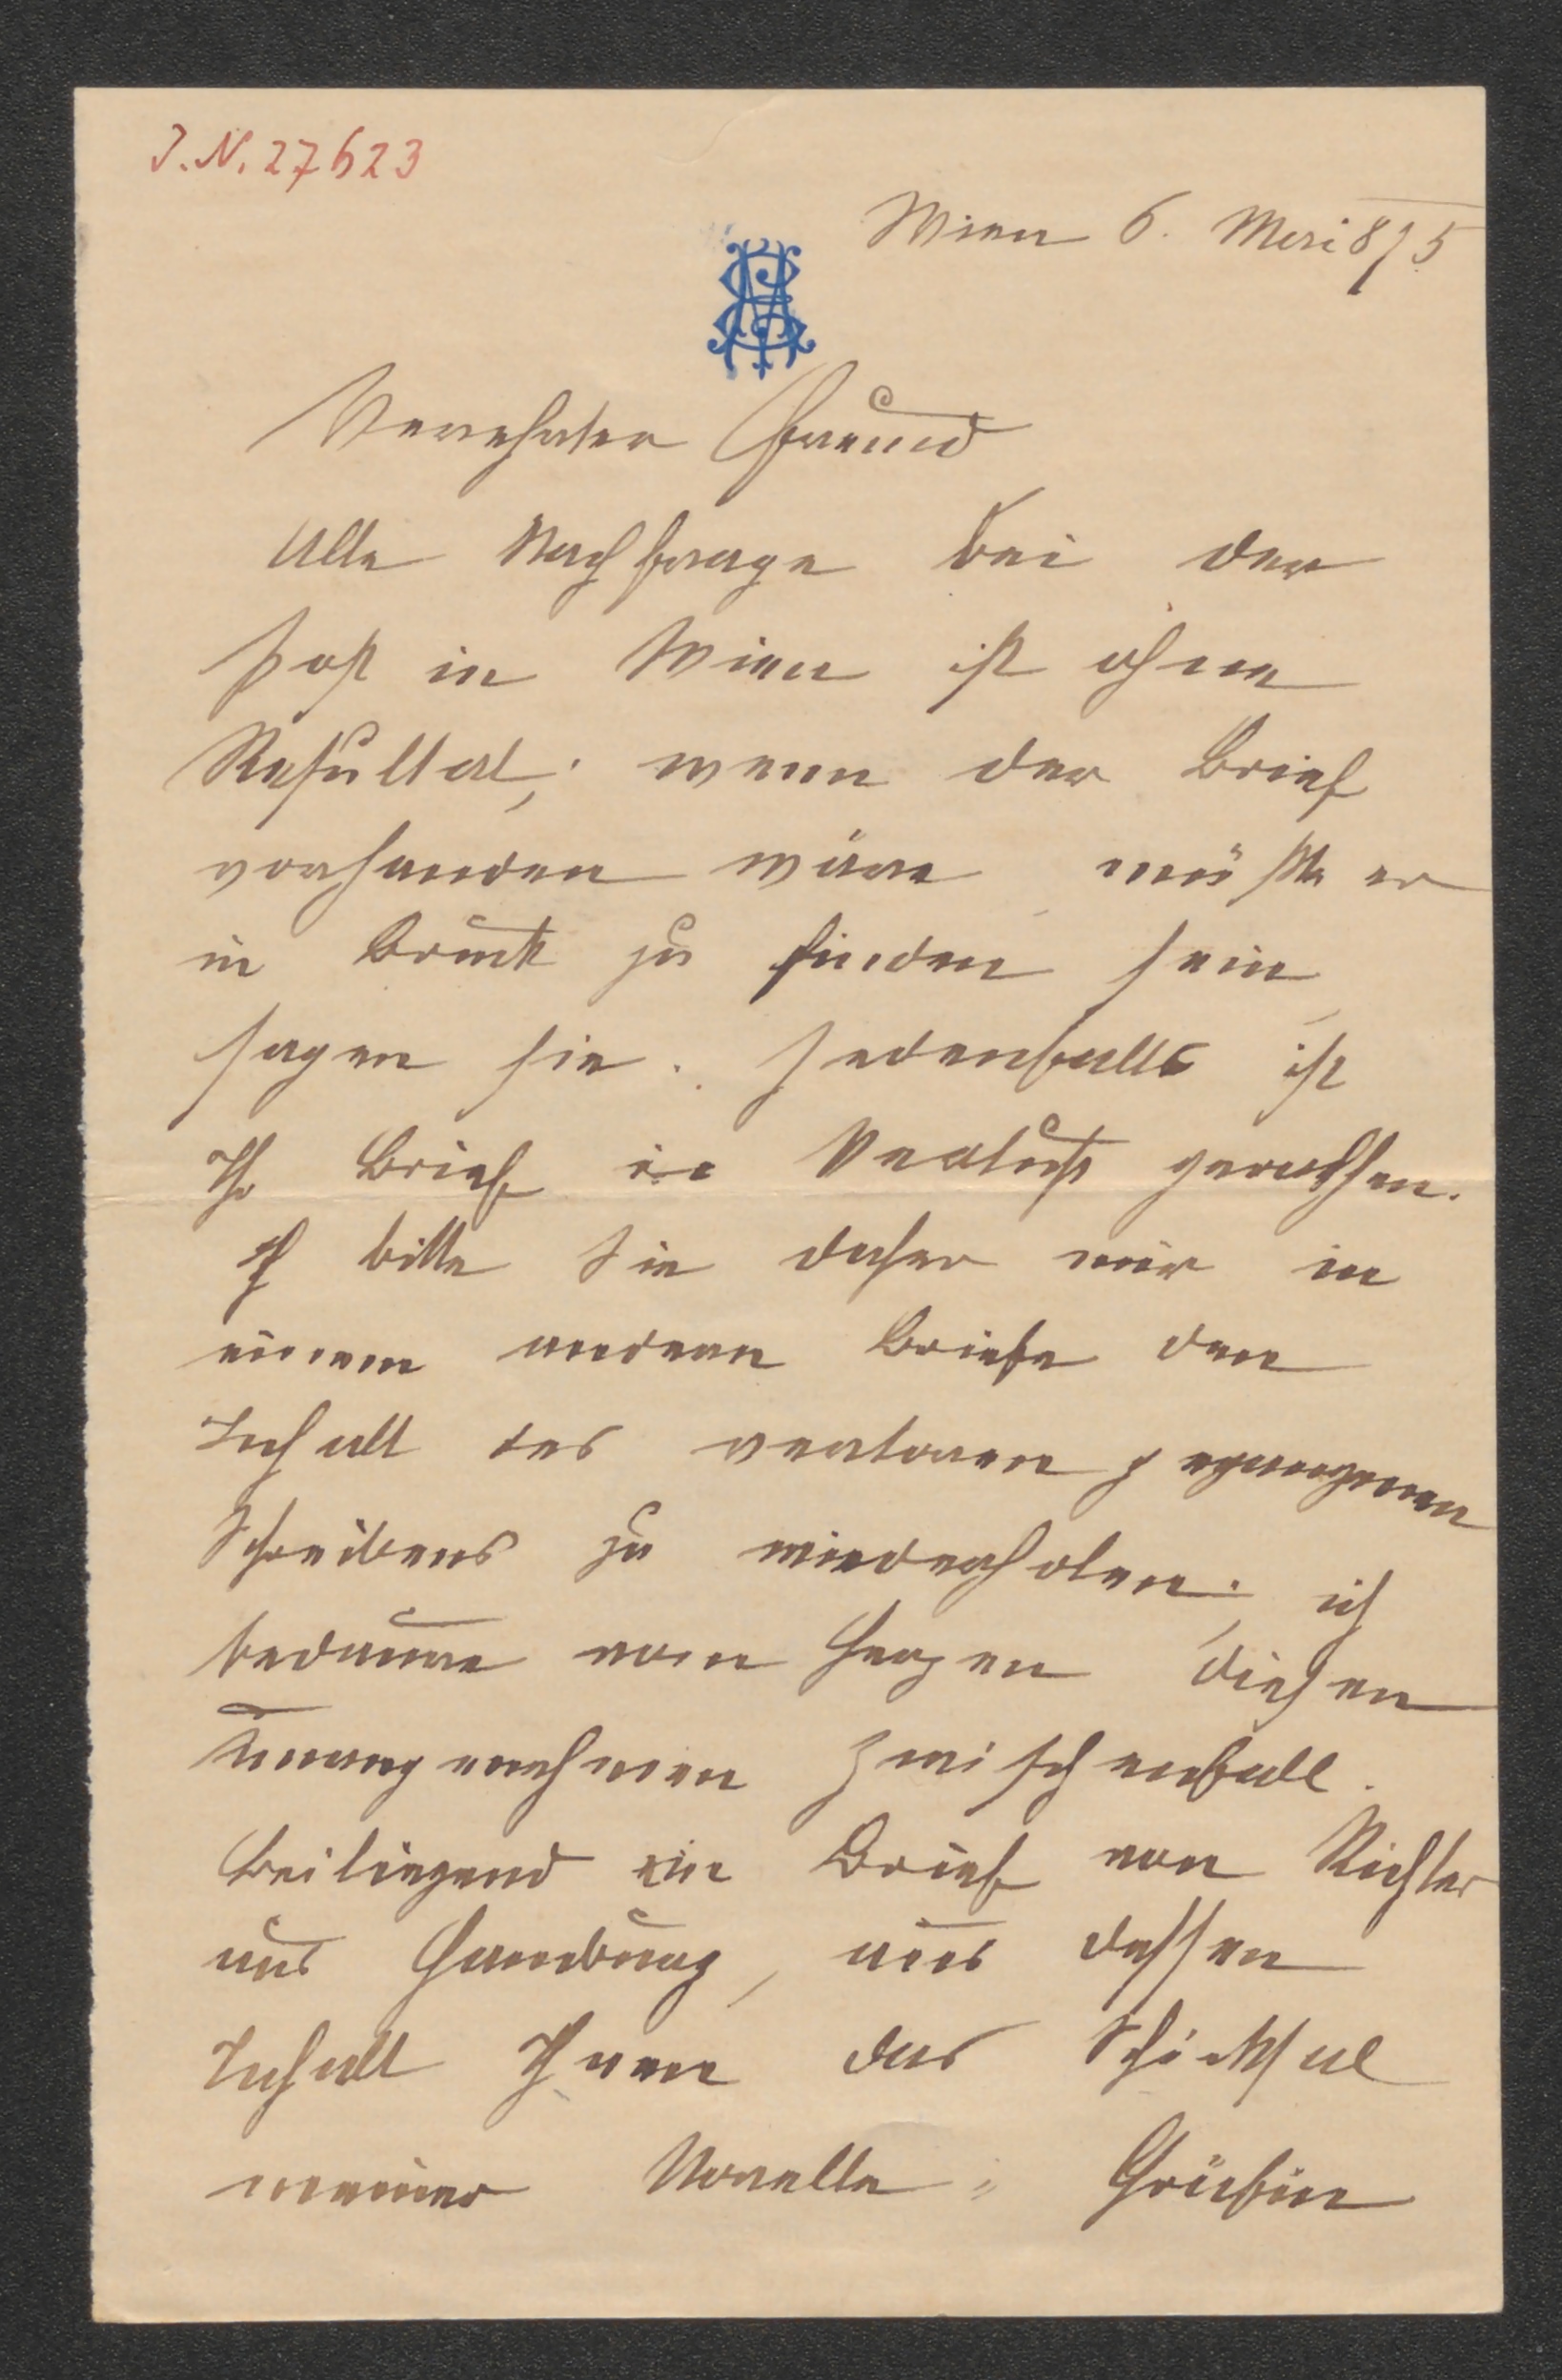 J.N. 27623
Wien 6. Mai 875
Verehrter Freund
Alle Nachfrage bei der
Post in Wien ist ohne
Resultat; wenn der Brief
vorhanden wäre müßte er
in Bruck zu finden sein,
sagen sie. Jedenfalls ist
Ihr Brief in Verlust gerathen.
Ich bitte Sie daher mir in
einem andern Briefe den
Inhalt des verloren gegangenen
Schreibens zu wiederholen; ich
bedaure vom Herzen diesen
unangenehmen Zwischenfall.
Beiliegend ein Brief von Richter
aus Hamburg, aus dessen
Inhalt Ihnen das Schicksal
meiner Novelle: Gräfin